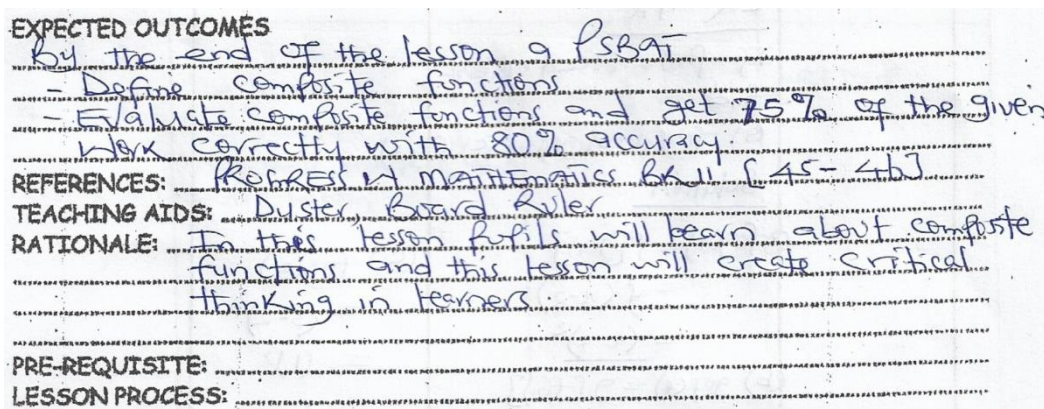 EXPECTED OUTCOMES
By the end of the lesson a PSBAT
- Define composite functions
- Evaluate composite functions and get 75% of the given
work correctly with 80% accuracy.
REFERENCES: PROGRESS IN MATHEMATICS BK 11 [45-46]
TEACHING AIDS: Duster, Board Ruler
RATIONALE: In this lesson pupils will learn about composite
functions and this lesson will create critical
thinking in learners
PRE-REQUISITE:
LESSON PROCESS: